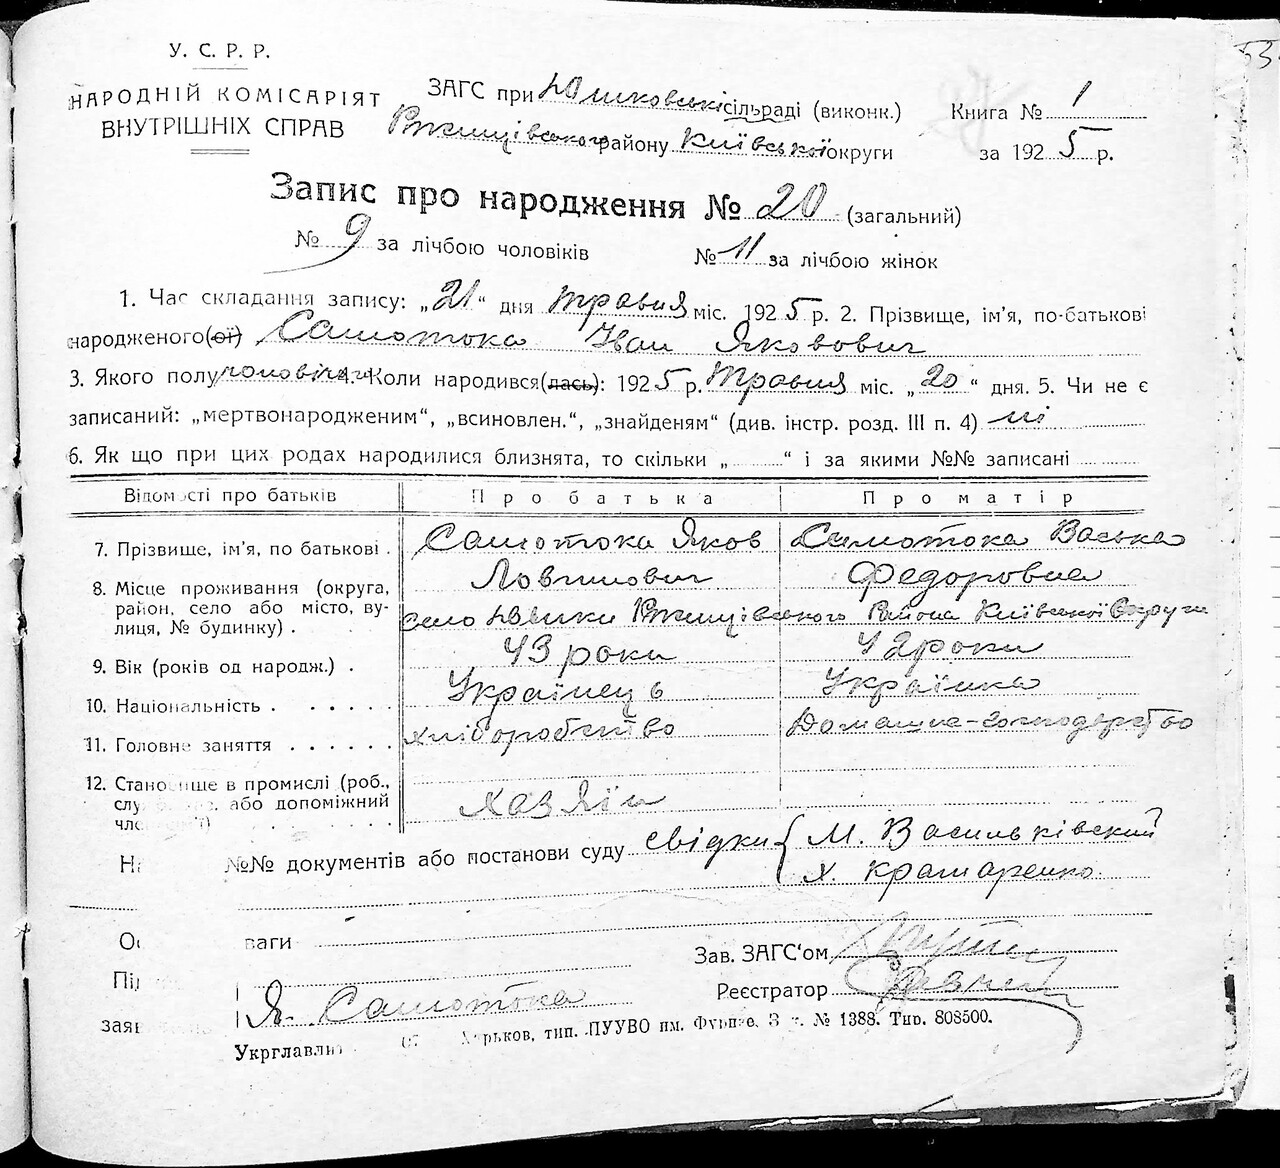 53
У. С. Р. Р.
НАРОДНІЙ КОМІСАРІЯТ
ВНУТРІШНІХ СПРАВ
ЗАГС при Юшковській сільраді (виконк.)
Ржищівського району Київської округи
Книга № 1
за 1925 р.
Запис про народження № 20 (загальний)
№ 9 за лічбою чоловіків № 11 за лічбою жінок
1. Час складання запису: „21“ дня травня міс. 1925 р. 2. Прізвище, ім'я, по-батькові
народженого(ої) Самотока Іван Якович
3. Якого полу чоловічого 4. Коли народився(лась): 1925 р. Травня міс. „20“ дня. 5. Чи не є
записаний: „мертвонародженим“, „всиновлен.“, „знайденям“ (див. інстр. розд. III п. 4) ні
6. Як що при цих родах народилися близнята, то скільки „ “ і за якими №№ записані
Відомості про батьків Про батька Про матір
7. Прізвище, ім'я, по батькові . Самотока Яков Самотока Васька
Федоровна
8. Місце проживання (округа,
район, село або місто, ву-
лиця, № будинку) . село Юшки Ржищівського Района Київської Округи
9. Вік (років од народж.) . 43 роки 42 роки
10. Національність . . . . . . Українець Українка
11. Головне заняття . . . . . . хліборобство Домашне-господарство
12. Становище в промислі (роб.,
або допоміжний
хазяїн
№№ документів або постанови суду свідки { М. Васильківский
Х. Крамаренко
ваги
Зав. ЗАГС'ом
Реєстратор
Я. Самотока
Укрглавліт Харьков, тип. ПУУВО им. Фрунзе. № 1388. Тир. 808500.